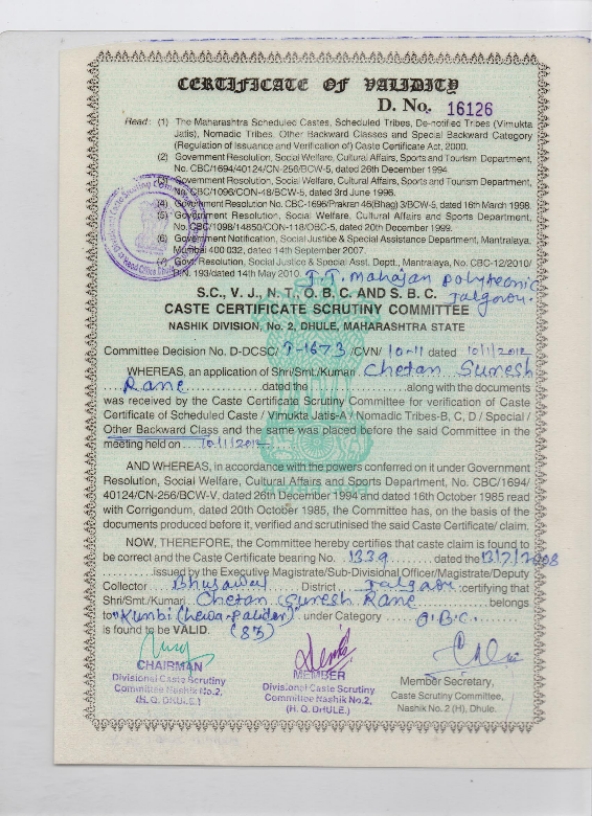 CERTIFICATE OF VALIDITY
D. No. 16126
Read: (1) The Maharashtra Scheduled Castes, Scheduled Tribes, De-notified Tribes (Vimukta
Jatis), Nomadic Tribes, Other Backward Classes and Special Backward Category
(Regulation of Issuance and Verification of) Caste Certificate Act, 2000.
(2) Government Resolution, Social Welfare, Cultural Affairs, Sports and Tourism Department,
No. CBC/1694/40124/CN-256/BCW-5, dated 26th December 1994
(3) Government Resolution, Social Welfare, Cultural Affairs, Sports and Tourism Department,
No. CBC/1096/CON-48/BCW-5, dated 3rd June 1996.
(4) Government Resolution No. CBC-1696/Prakran 46(Bhag) 3/BCW-5, dated 16th March 1998.
(5) Government Resolution, Social Welfare, Cultural Affairs and Sports Department,
No. CBC/1098/14850/CON-118/OBC-5, dated 20th December 1999.
(6) Government Notification, Social Justice & Special Assistance Department, Mantralaya,
Mumbai 400 032, dated 14th September 2007.
(7) Govt. Resolution, Social Justice & Special Asst. Deptt., Mantralaya, No. CBC-12/2010/
P.N. 193/dated 14th May 2010.
J.T. Mahajan polytecnic
Jalgaon.
S.C., V. J., N. T., O. B. C. AND S. B. C.
CASTE CERTIFICATE SCRUTINY COMMITTEE
NASHIK DIVISION No. 2, DHULE, MAHARASHTRA STATE
Committee Decision No. D-DCSC/ J-1673 /CVN/ 10-11 dated 10/1/2012
WHEREAS, an application of Shri/Smt./Kumari Chetan Suresh
Rane dated the along with the documents
was received by the Caste Certificate Scrutiny Committee for verification of Caste
Certificate of Scheduled Caste / Vimukta Jatis-A / Nomadic Tribes-B, C, D / Special /
Other Backward Class and the same was placed before the said Committee in the
meeting held on 10/1/2012
AND WHEREAS, in accordance with the powers conferred on it under Government
Resolution, Social Welfare, Cultural Affairs and Sports Department, No. CBC/1694/
40124/CN-256/BCW-V, dated 26th December 1994 and dated 16th October 1985 read
with Corrigendum, dated 20th October 1985, the Committee has, on the basis of the
documents produced before it, verified and scrutinised the said Caste Certificate/ claim.
NOW, THEREFORE, the Committee hereby certifies that caste claim is found to
be correct and the Caste Certificate bearing No. 1339 dated the 13/7/2008
issued by the Executive Magistrate/Sub-Divisional Officer/Magistrate/Deputy
Collector Bhusawal District Jalgaon certifying that
Shri/Smt./Kumari Chetan Suresh Rane belongs
to "Kunbi (Lewa-Patidar)" under Category O.B.C.
is found to be VALID. (83)
CHAIRMAN
Divisional Caste Scrutiny
Committee Nashik No.2,
(H. Q. DHULE.)
MEMBER
Divisional Caste Scrutiny
Committee Nashik No.2,
(H. Q. DHULE.)
Member Secretary,
Caste Scrutiny Committee,
Nashik No. 2 (H), Dhule.